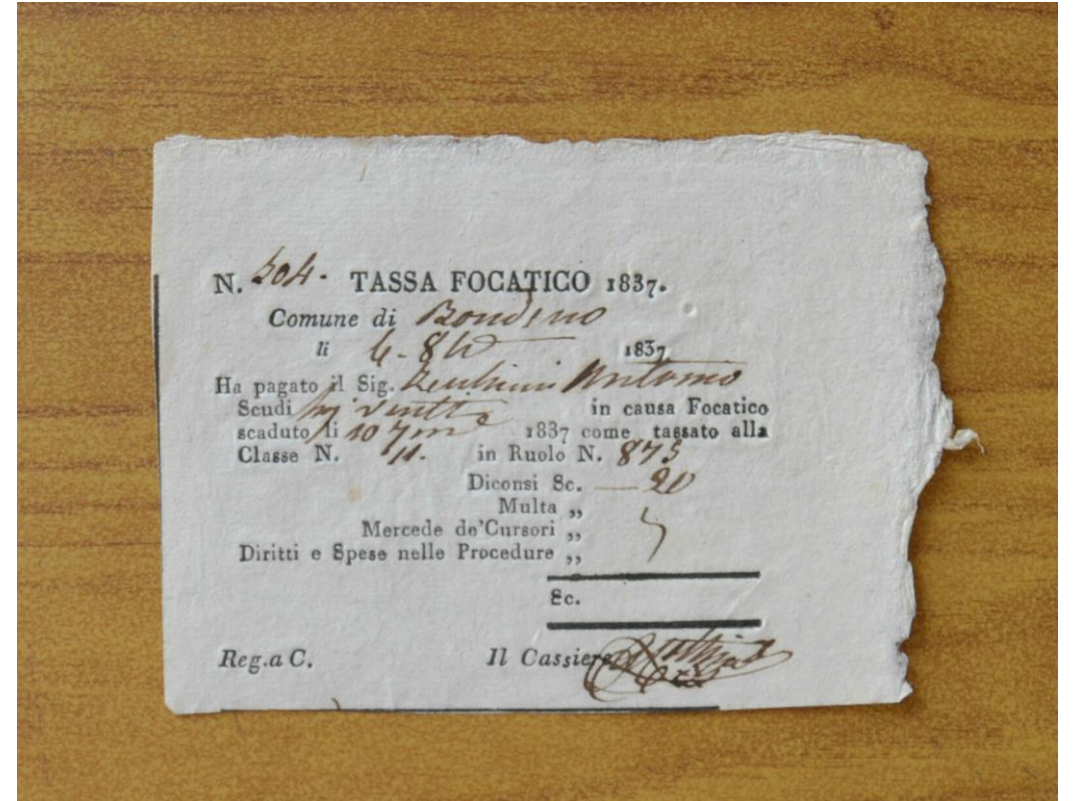 N. 504. TASSA FOCATICO 1837.
Comune di Bondeno
li 6. 8bre 1837
Ha pagato il Sig. Antonio
Scudi in causa Focatico
scaduto li 10 7mbre 1837 come tassato alla
Classe N. 11. in Ruolo N. 875
Diconsi Sc. — 20
Multa „
Mercede de'Cursori „
Diritti e Spese nelle Procedure „
Sc.
Reg.a C. Il Cassiere